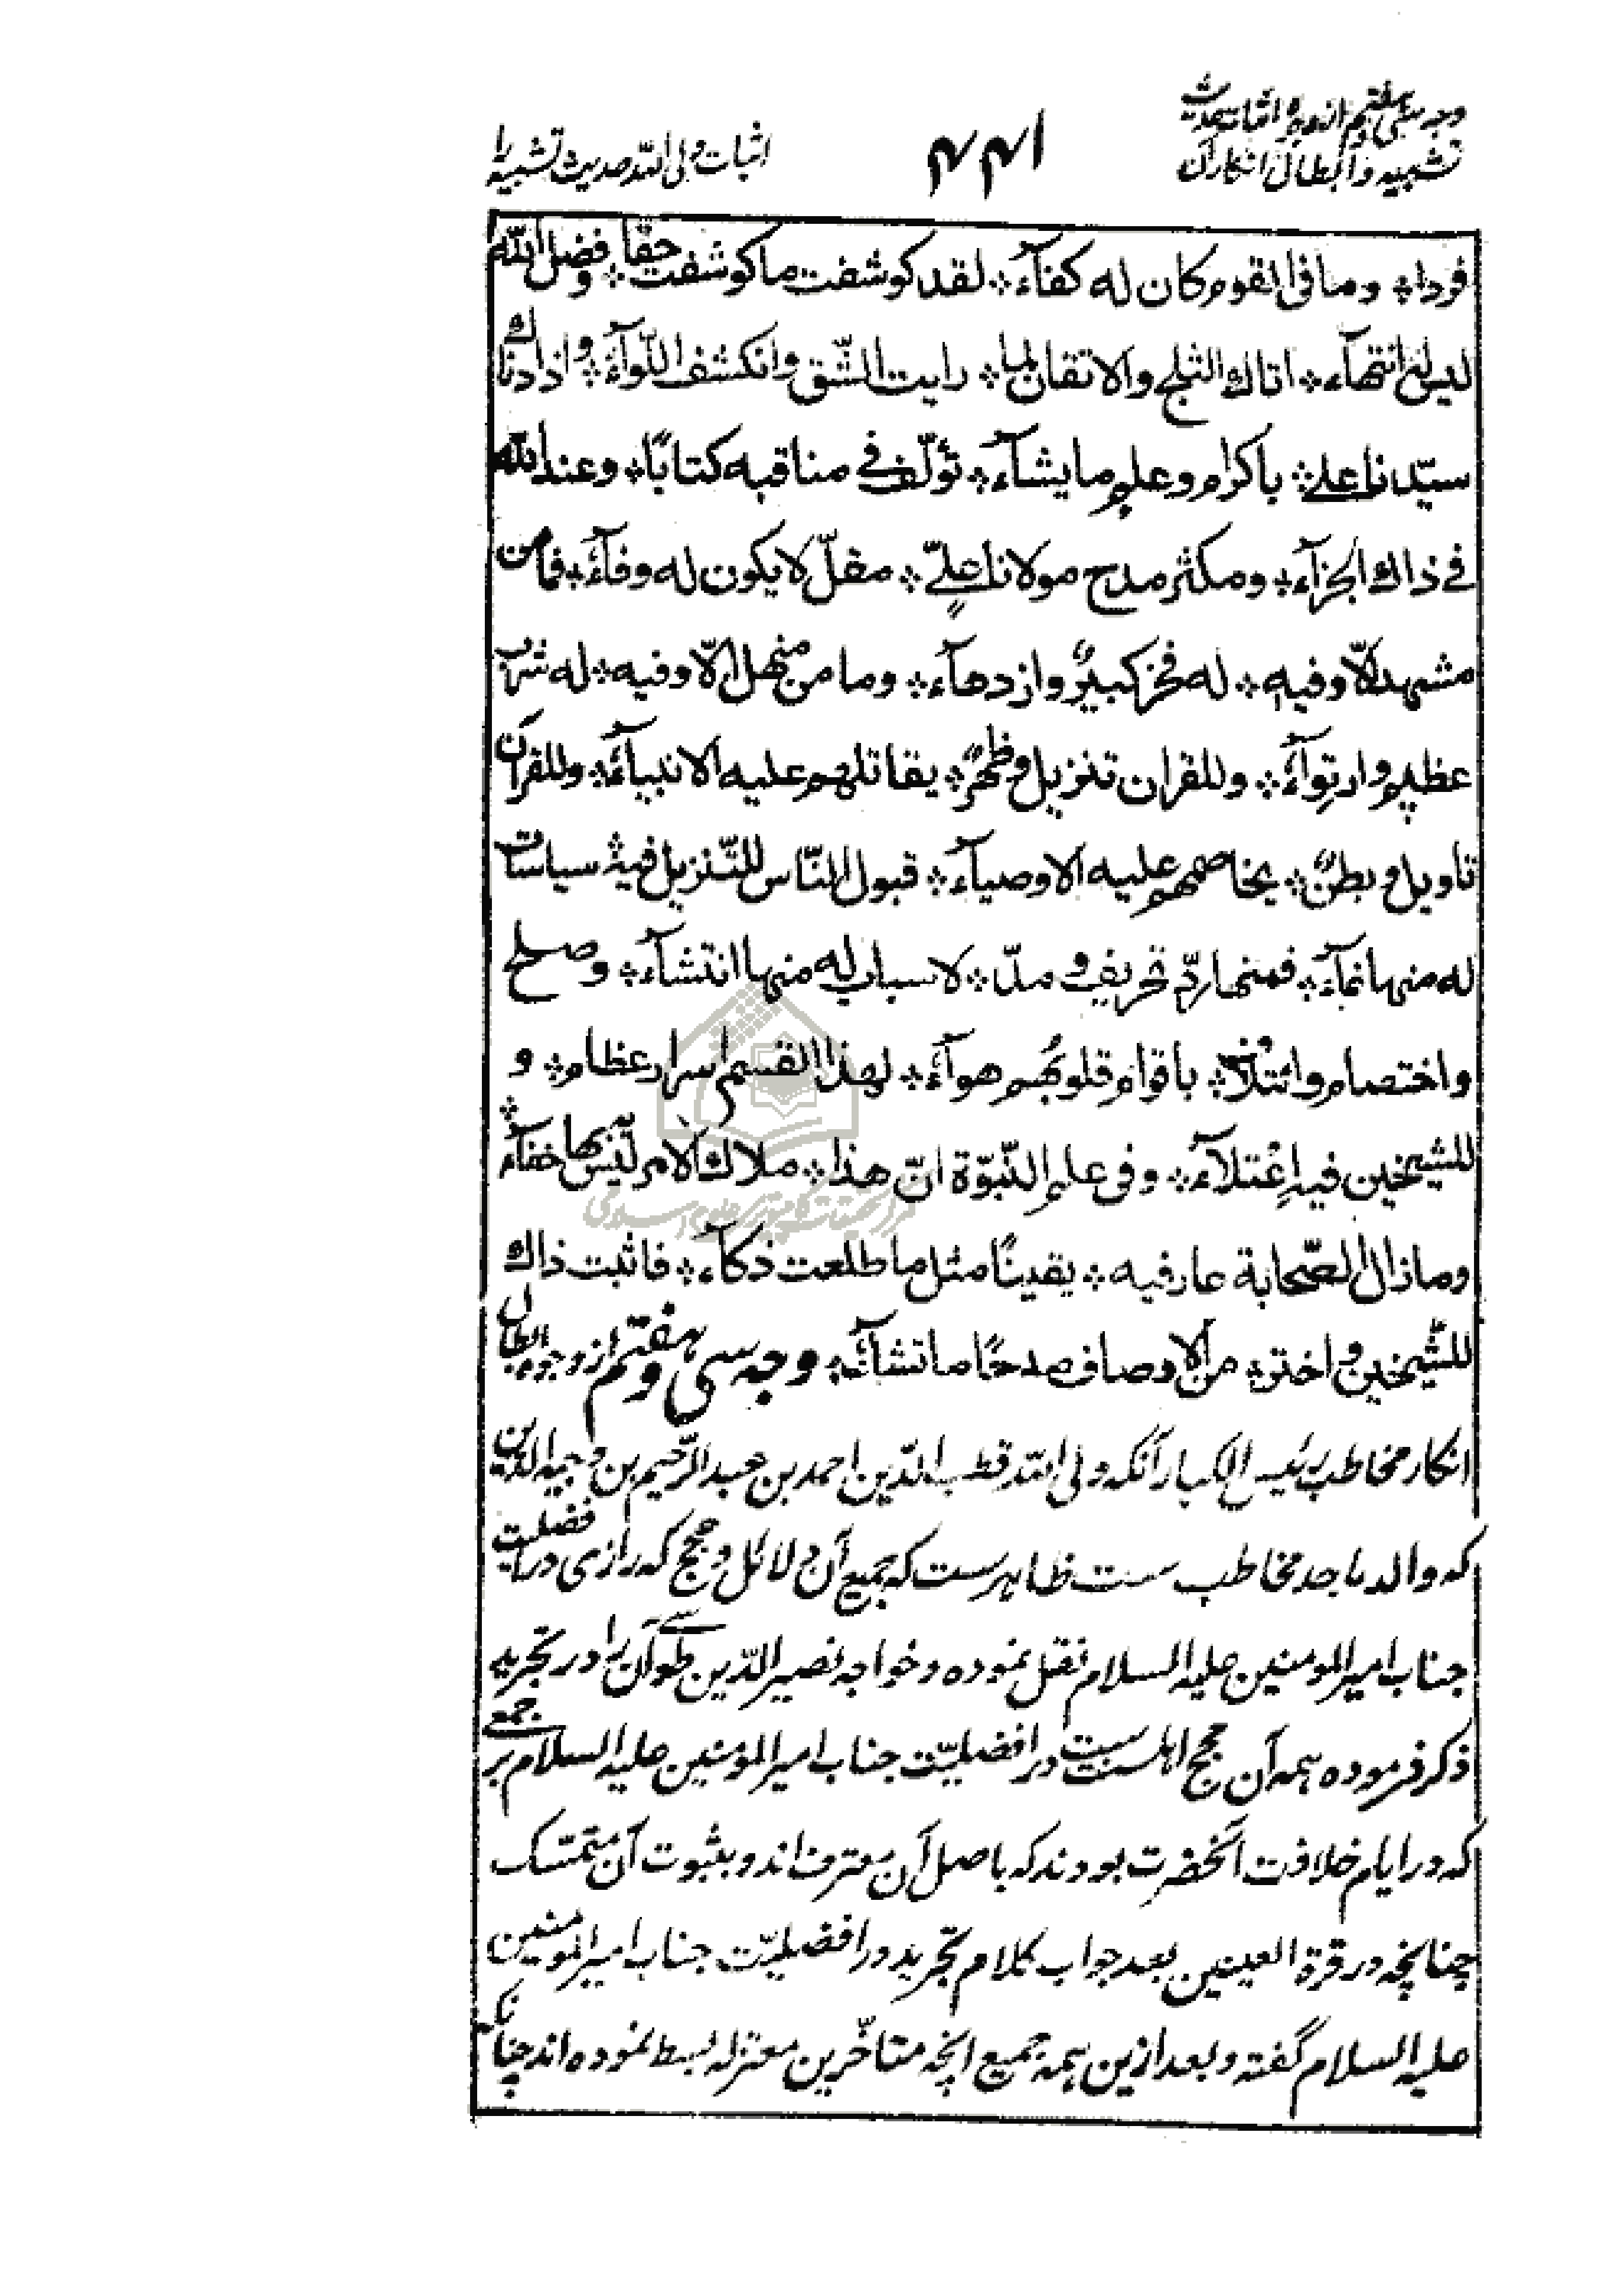 وجه سی و هفتم از وجوه اثبات حدیث
تشبیه و ابطال انکار آن
۴۴۱
اثبات ولی الله حدیث تشبیه را
فردا * وما فی القوم کان له کفآء * لقد کوشفت ما کوشفت حقا * وفضل الله
لیس له انتهآء * اتاک الثلج والاتقان لما * رایت الشّق وانکشف اللّوآء * واذا دنا لک
سیّدنا علے * باکرام وعلم ما یشآء * تؤلّف فے مناقبه کتابًا * وعند الله
فے ذاک الجزآء * ومکثر مدح مولانا علیّ * مقلّ لا یکون له وفآء * فما من
مشهد الّا وفیه * له فخر کبیرٌ وازدهآء * وما من منهل الّا وفیه * له شرب
عظیم وارتوآء * وللقران تنزیل وظهرٌ * یقاتلهم علیه الانبیآء * وللقرآن
تاویل وبطنٌ * یخاصمهم علیه الاوصیآء * قبول النّاس للتّنزیل فیه * سیاسات
له منها نمآء * فمنها ردّ تحریف ومدّ * لاسباب له منها انتشآء * وصلح
واختصام وائتلاف * باقوام قلوبهُم هوآء * لهذا القسم اسرار عظام * و
للشیخین فیه اِعْتلآء * وفی علم النّبوّة انّ هذا * ملاک الامر لیس بها خفآء *
وما زال الصّحابة عارفیه * یقینًا مثل ما طلعت ذکآء * فاثبت ذاک
للشّیخین واختر * من الاوصاف مدحًا ما تشآء * وجه سی و هفتم از وجوه ابطال
انکار مخاطب رئیس الکبار آنکه ولی الله قطب الدّین احمد بن عبد الرّحیم بن وجیه الدین
که والد ماجد مخاطب ست ظاهرست که جمیع آن دلائل و حجج که رازی در افضلیت
جناب امیر المومنین علیه السلام نقل نموده و خواجه نصیر الدّین طوسے آن را در تجرید
ذکر فرموده همه آن حجج اهلسنت ست در افضلیّت جناب امیر المؤمنین علیه السلام بر جمعے
که در ایام خلافت آنحضرت بودند که باصل آن معترف اند و بثبوت آن متمسّک
چنانچه در قرة العینین بعد جواب کلام تجرید در افضلیّت جناب امیر المومنین
علیه السلام گفته و بعد ازین همه جمیع انچه متاخّرین معتزله بسط نموده اند چنانکه